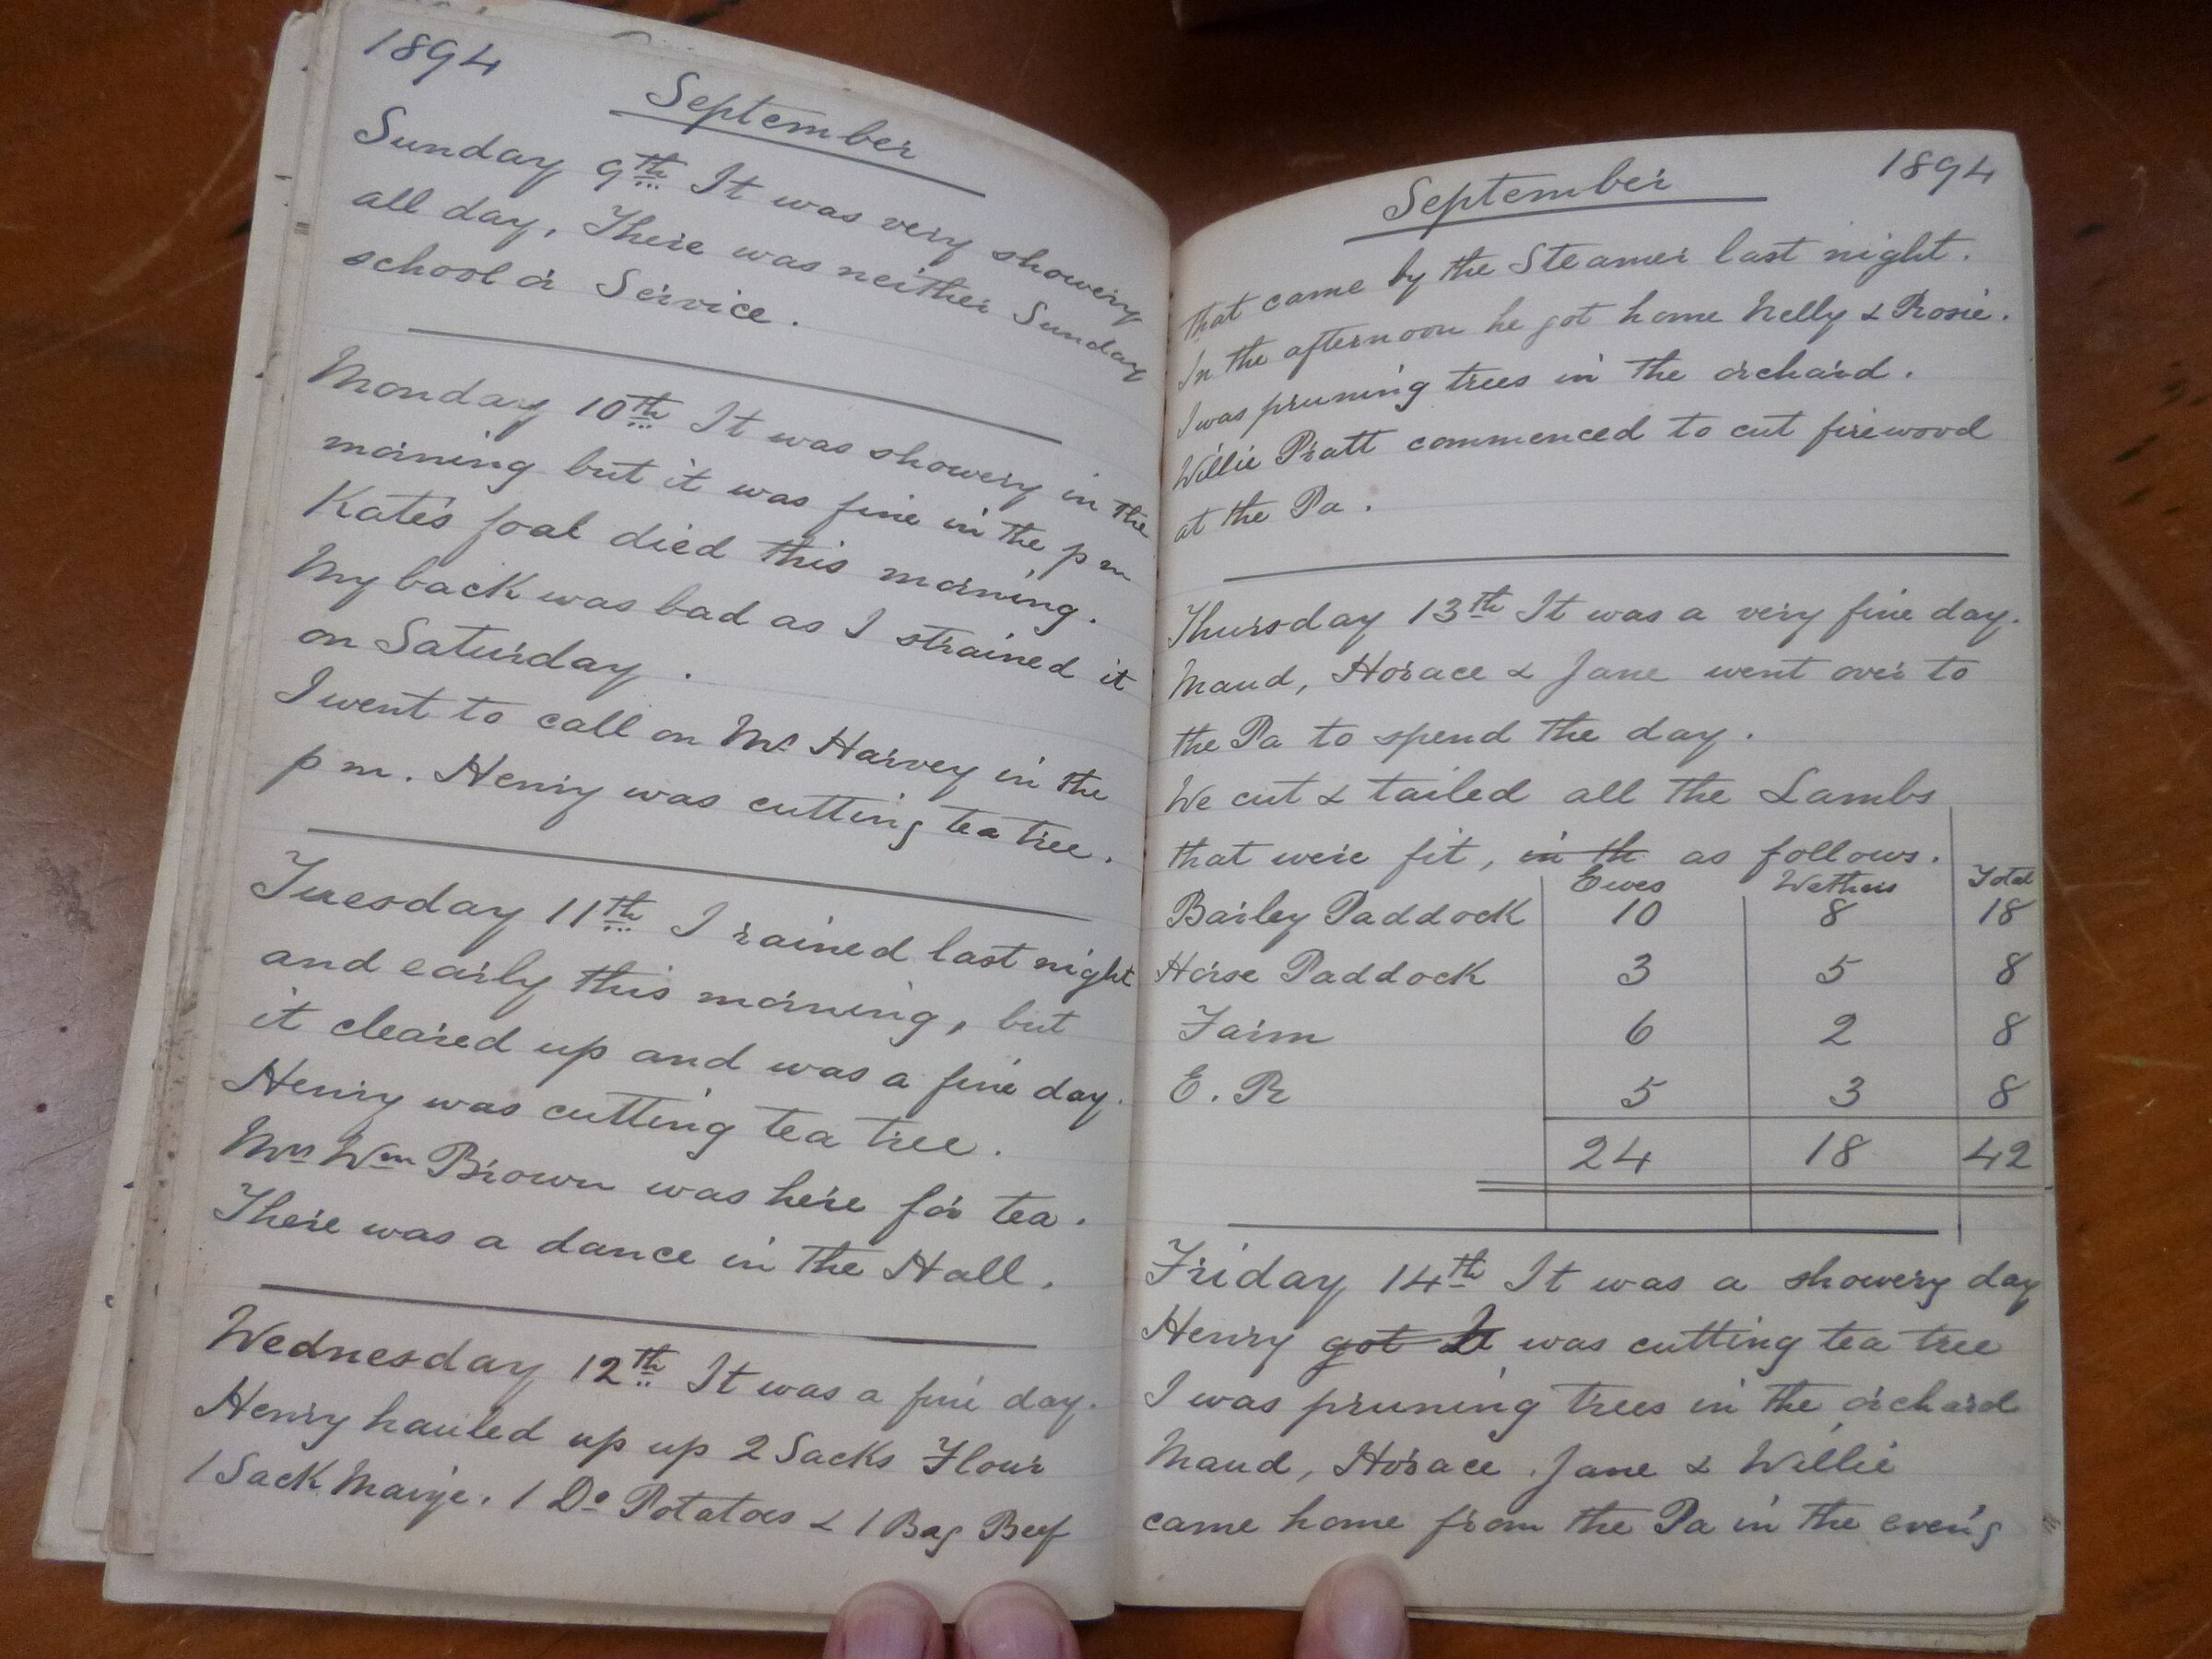 1894
September
Sunday 9th It was very showery
all day, There was neither Sunday
school or Service.
Monday 10th It was showery in the
morning but it was fine in the p m
Kate's foal died this morning.
My back was bad as I strained it
on Saturday.
I went to call on Mr Harvey in the
p m. Henry was cutting tea tree.
Tuesday 11th I rained last night
and early this morning, but
it cleared up and was a fine day.
Henry was cutting tea tree.
Mrs Wm Brown was here for tea.
There was a dance in the Hall.
Wednesday 12th It was a fine day.
Henry hauled up up 2 Sacks Flour
1 Sack Maize. 1 Do Potatoes & 1 Bag Beef
September 1894
that came by the Steamer last night.
In the afternoon he got home Nelly & Rosie.
I was pruning trees in the orchard.
Willie Pratt commenced to cut firewood
at the Pa.
Thursday 13th It was a very fine day.
Maud, Horace & Jane went over to
the Pa to spend the day.
We cut & tailed all the Lambs
that were fit, in th as follows.
Ewes Wethers Total
Bailey Paddock 10 8 18
Horse Paddock 3 5 8
Farm 6 2 8
E. R 5 3 8
24 18 42
Friday 14th It was a showery day
Henry got was cutting tea tree
I was pruning trees in the orchard
Maud, Horace, Jane & Willie
came home from the Pa in the even'g